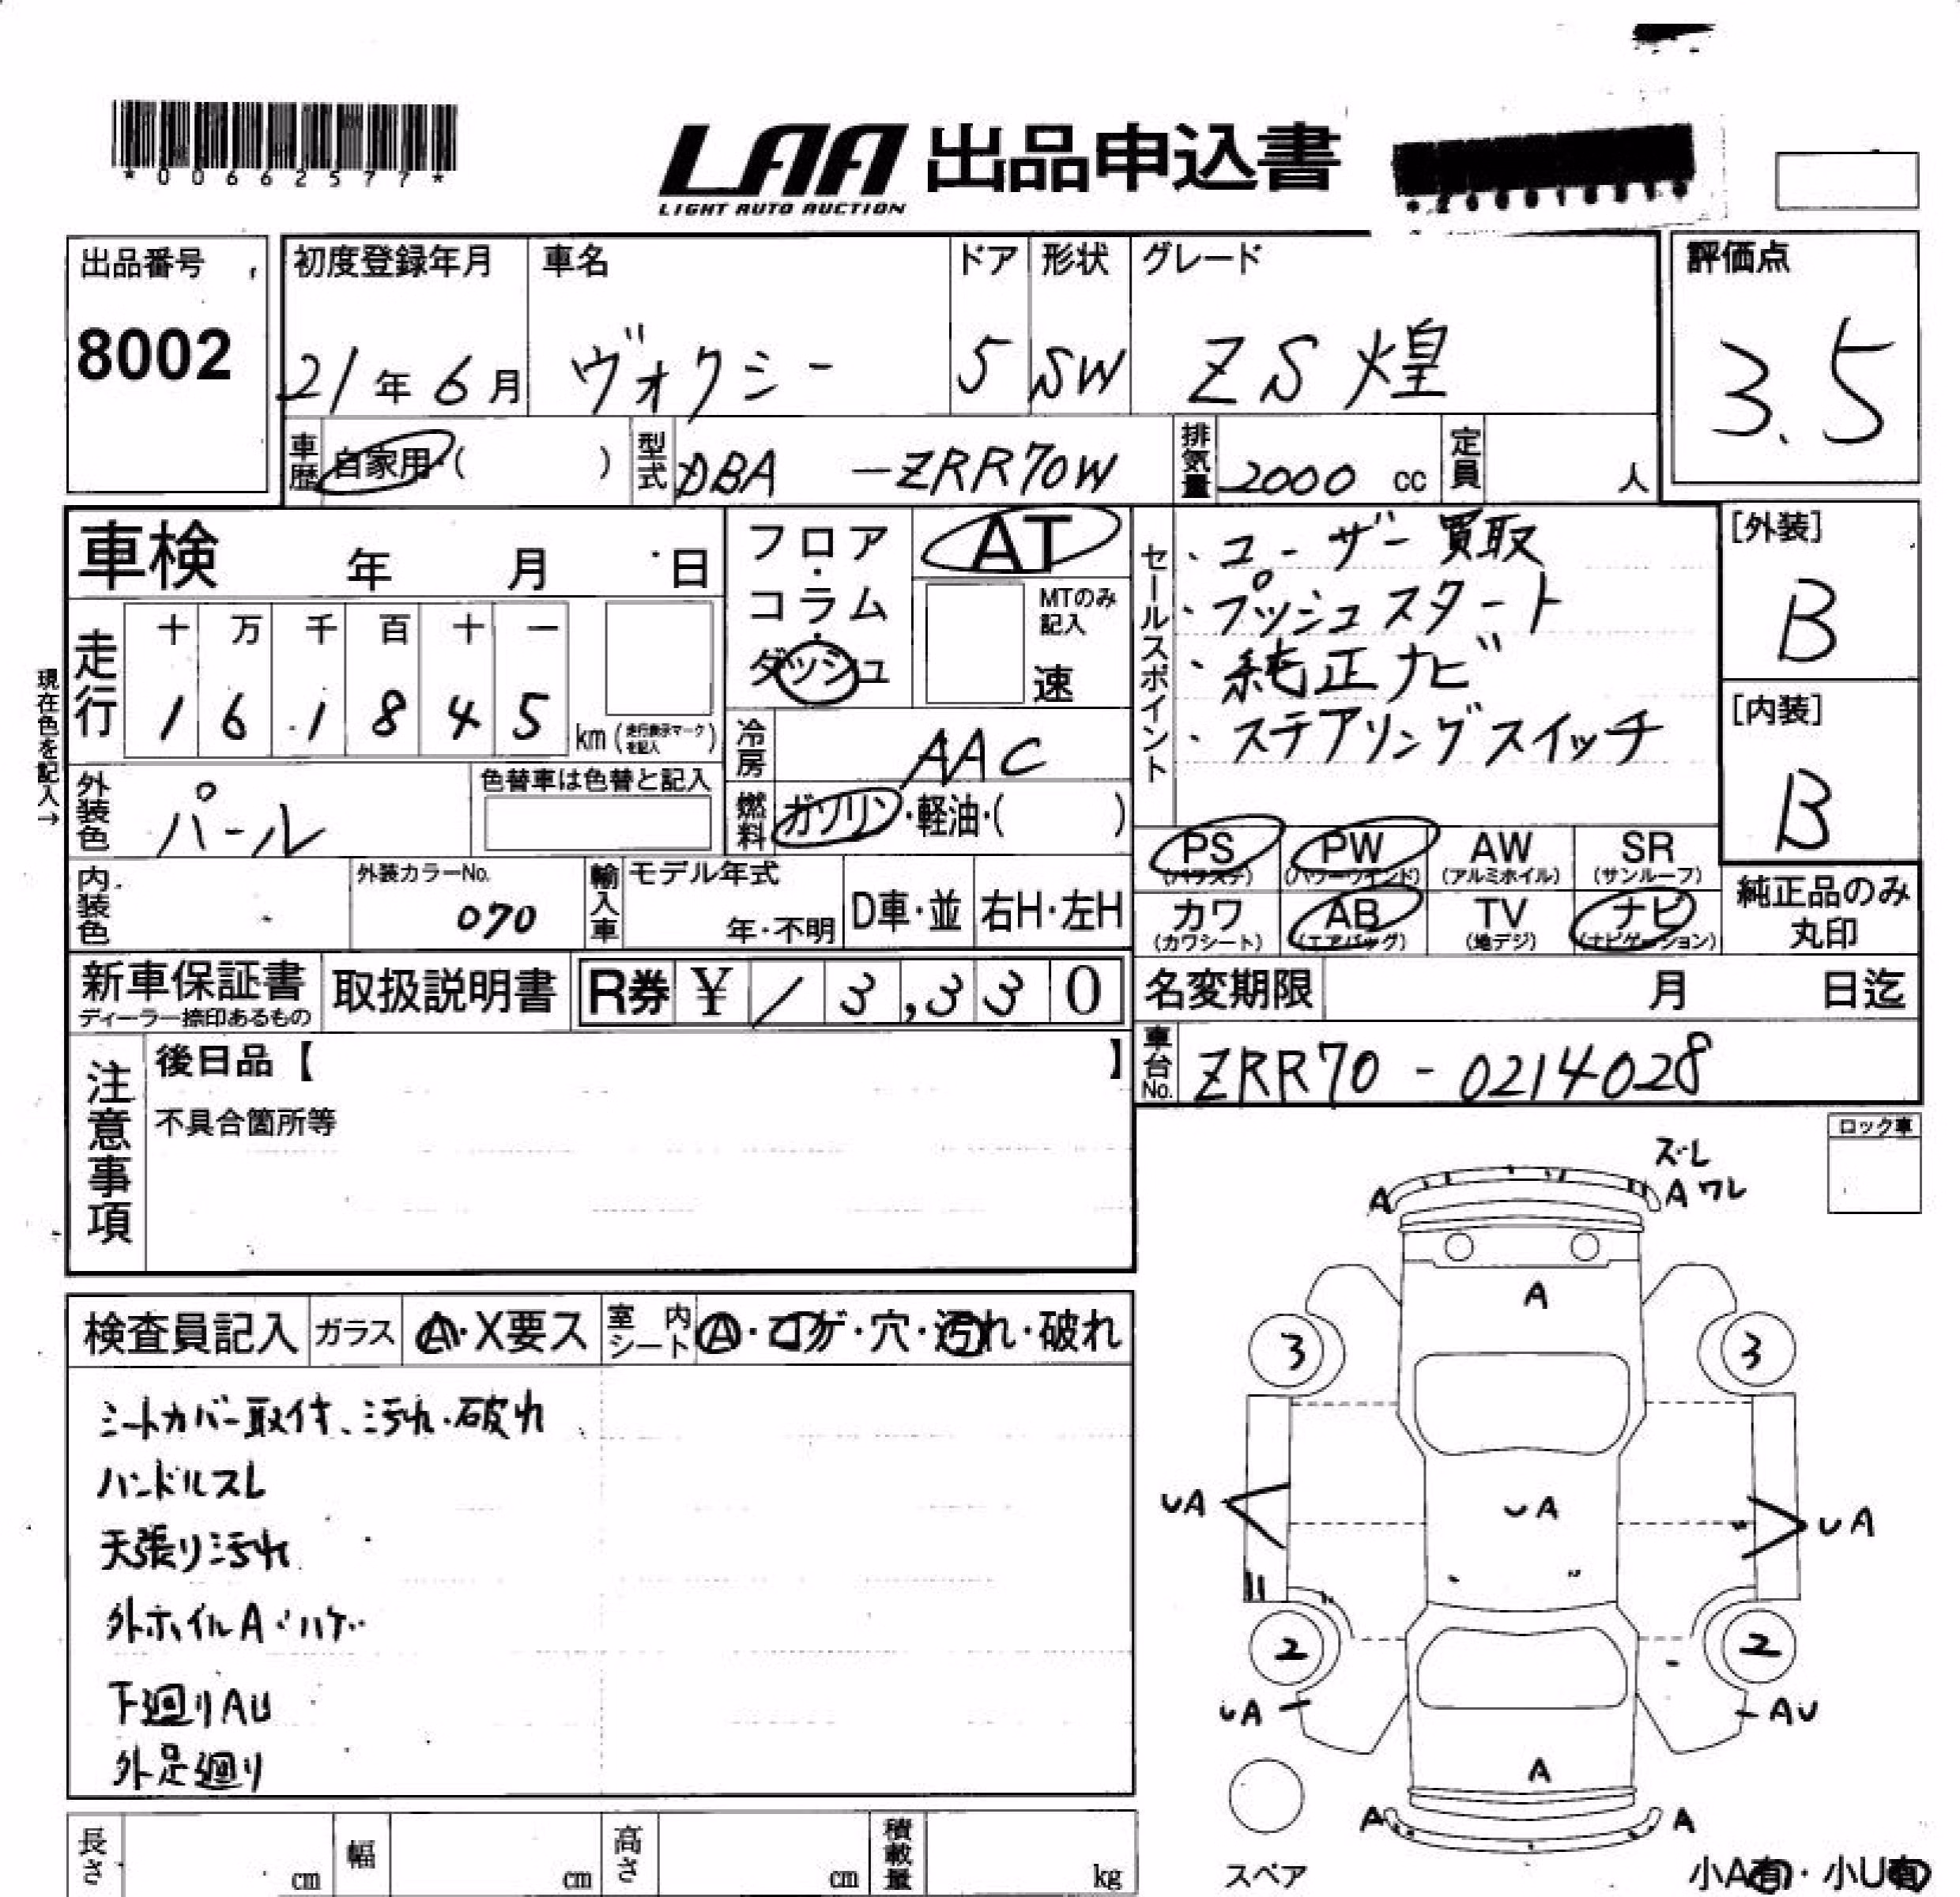 *00662577*
LAA 出品申込書
LIGHT AUTO AUCTION
出品番号
8002
初度登録年月
21年6月
車名
ヴォクシー
ドア
5
形状
SW
グレード
ZS 煌
評価点
3.5
車歴 自家用・( )
型式 DBA -ZRR70W
排気量 2000 cc
定員 人
車検 年 月 日
フロア・コラム・ダッシュ
AT
MTのみ記入
速
セールスポイント
・ユーザー買取
・プッシュスタート
・純正ナビ
・ステアリングスイッチ
[外装]
B
[内装]
B
現在色を記入→
走行
十 万 千 百 十 一
1 6 1 8 4 5 km (走行表示マークを記入)
冷房 AAC
外装色 パール
色替車は色替と記入
燃料 ガソリン・軽油・( )
PS (パワステ)
PW (パワーウインド)
AW (アルミホイル)
SR (サンルーフ)
内装色
外装カラーNo.
070
輸入車
モデル年式
年・不明
D車・並
右H・左H
カワ (カワシート)
AB (エアバッグ)
TV (地デジ)
ナビ (ナビゲーション)
純正品のみ丸印
新車保証書
ディーラー捺印あるもの
取扱説明書
R券 ¥ 13,330
名変期限 月 日迄
車台No. ZRR70-0214028
注意事項
後日品【 】
不具合箇所等
ロック車
ズレ
A
A ワレ
A
3
3
UA
UA
UA
2
2
UA
AU
A
A
A
スペア
小A有・小U有
検査員記入
ガラス A・X要ス
室内シート A・コゲ・穴・汚れ・破れ
シートカバー取付、汚れ・破れ
ハンドルスレ
天張り汚れ
外ホイルA・ハゲ
下廻りAU
外足廻り
長さ cm
幅 cm
高さ cm
積載量 kg